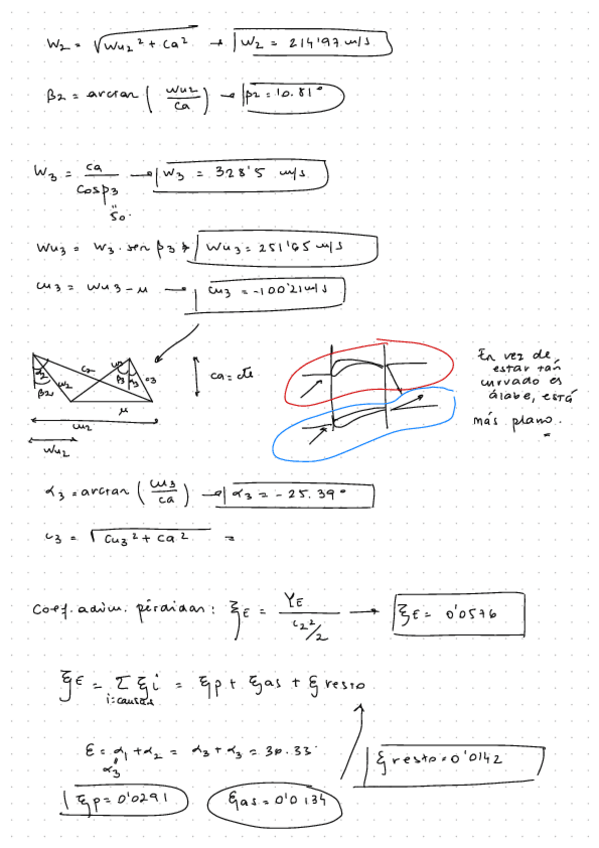 W2 = √(Wu2² + ca²) → W2 = 214'97 m/s
β2 = arctan (Wu2/ca) → β2 = 10.81°
W3 = ca/cosβ3 → W3 = 328'5 m/s
"
50.
Wu3 = W3 · sen β3 → Wu3 = 251'65 m/s
cu3 = Wu3 - u → cu3 = -100'21 m/s
α2 β2 w2 c2 w3 β3 α3 c3
u
cu2
Wu2
ca = cte
En vez de
estar tan
curvado el
álabe, está
más plano.
α3 = arctan (cu3/ca) → α3 = -25.39°
c3 = √(cu3² + ca²) =
Coef. adim. pérdidas: ξE = YE/(c2²/2) → ξE = 0'0576
ξE = Σ ξi = ξp + ξas + ξresto
i=causas
ξresto = 0'0142
ξp = 0'0291
ξas = 0'0134